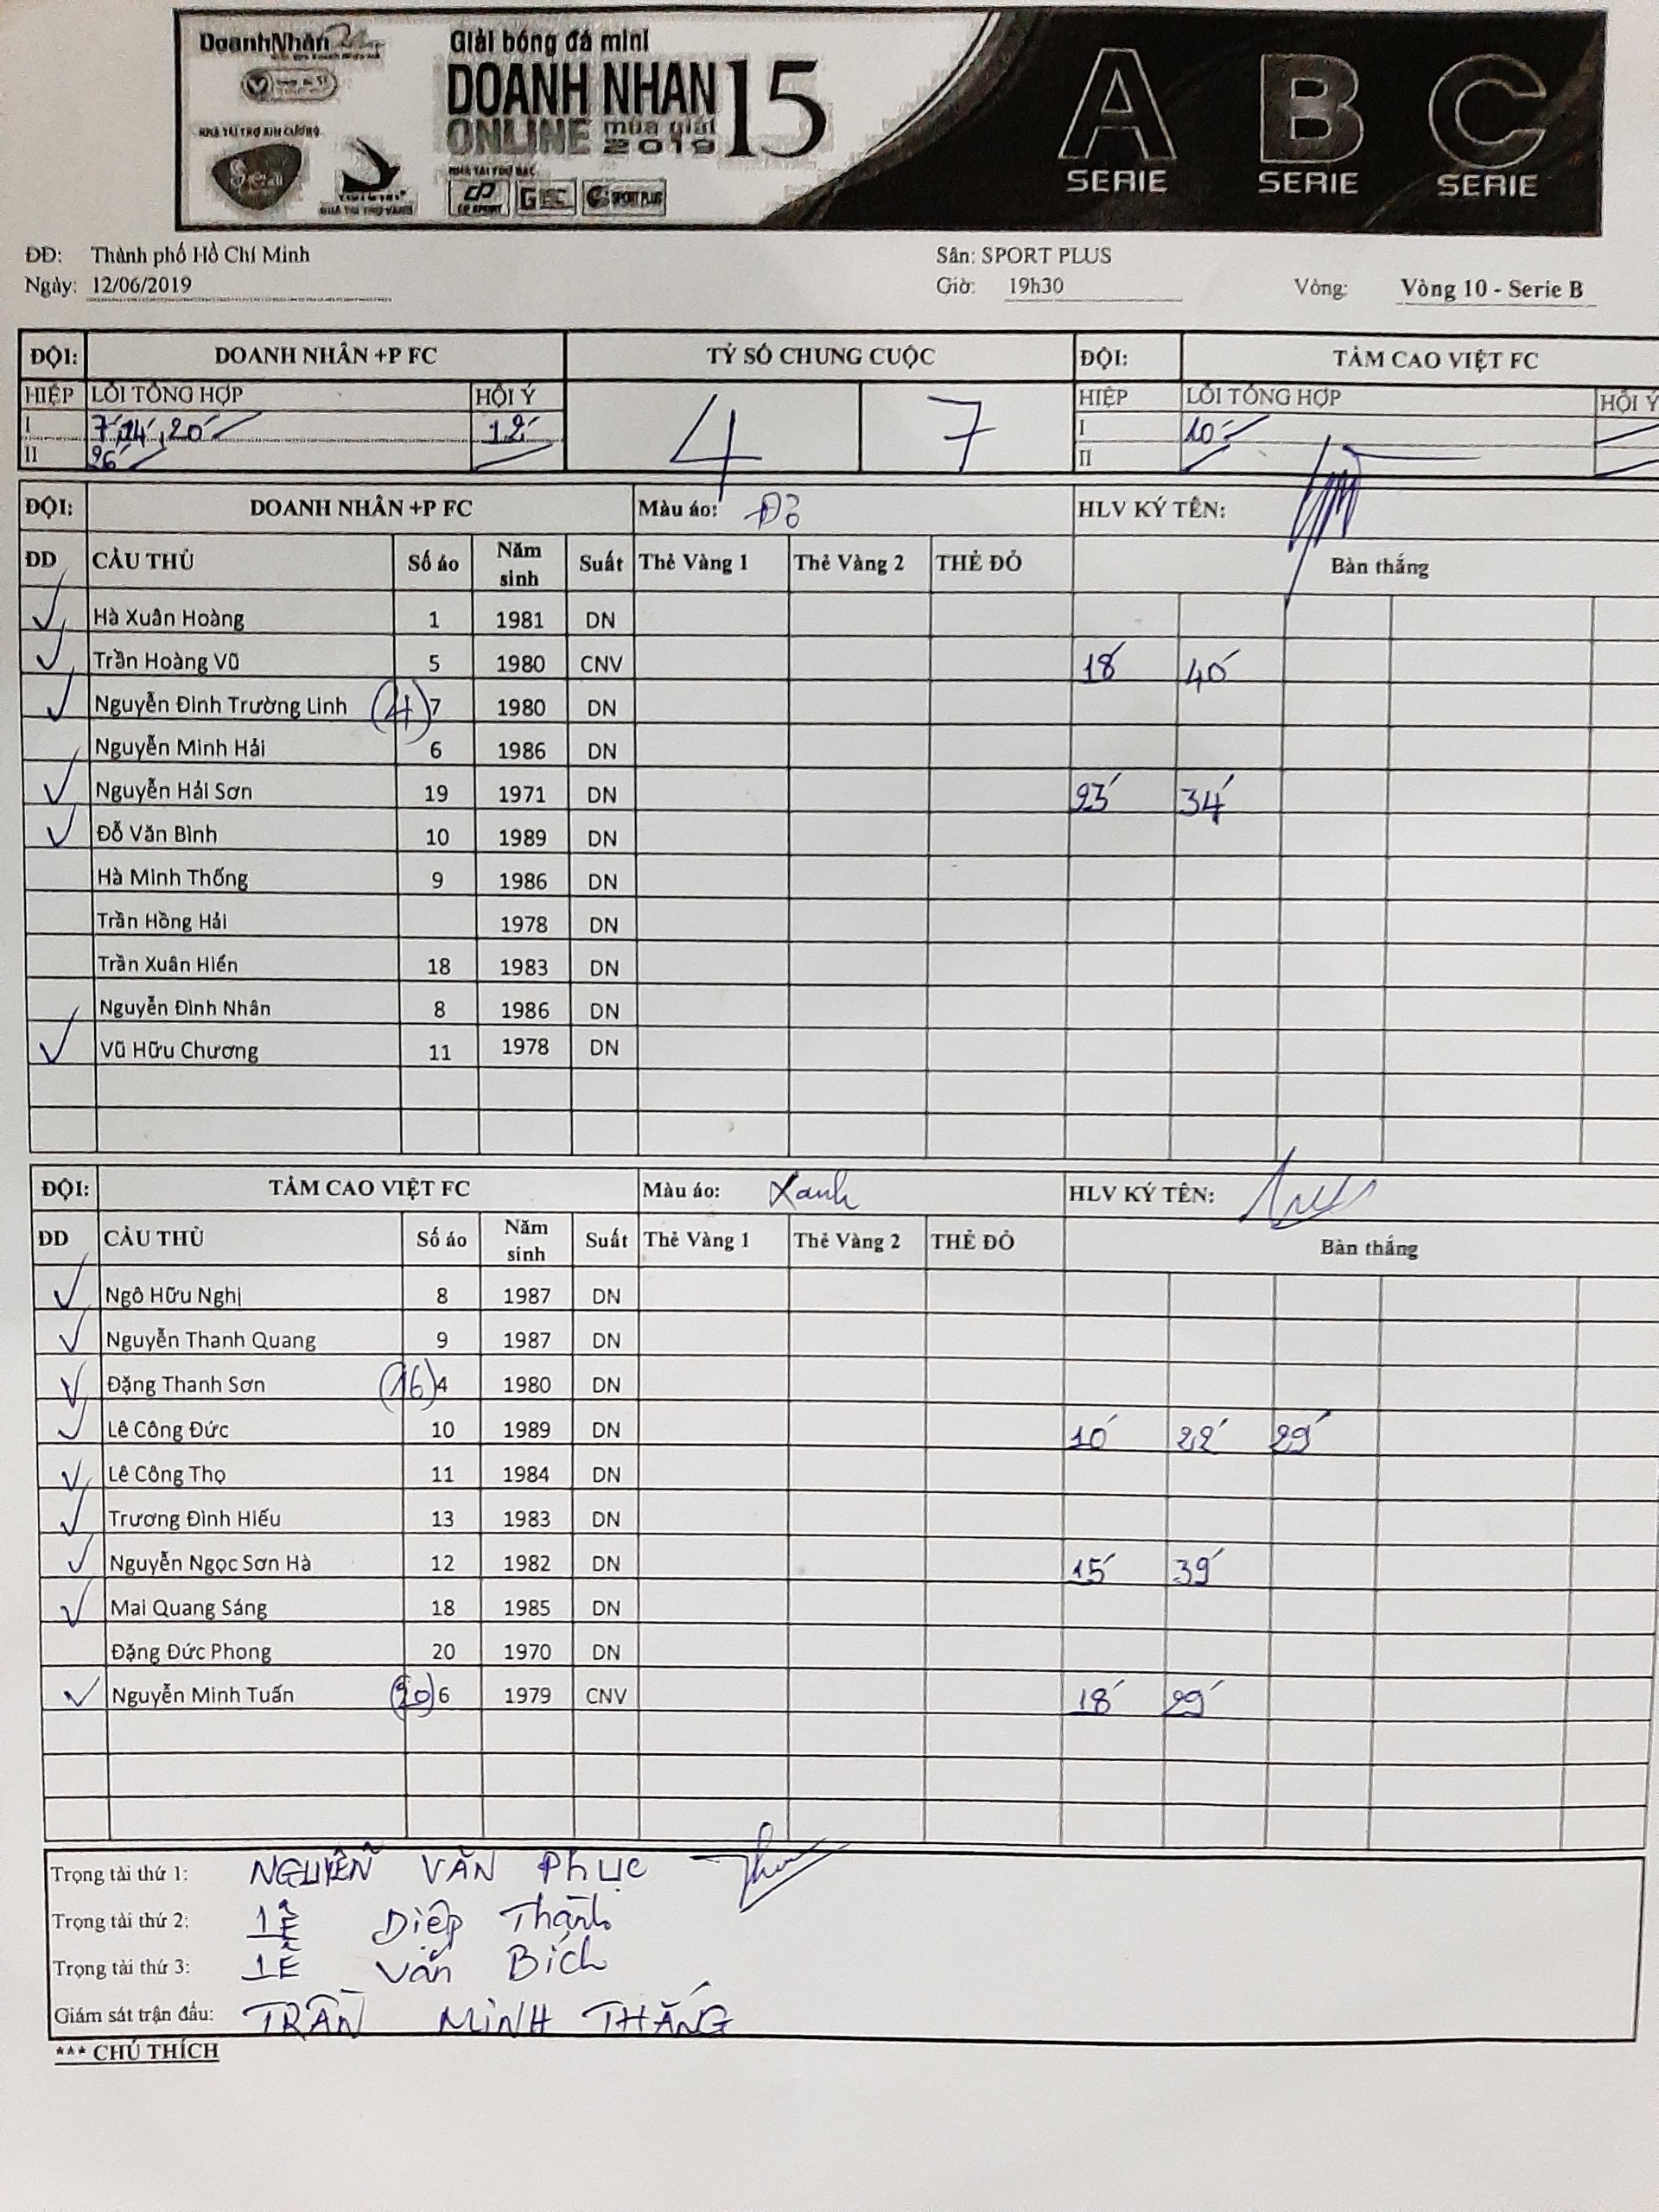 DoanhNhân
Giải bóng đá mini
DOANH NHAN 15
ONLINE mùa giải 2019
NHÀ TÀI TRỢ KIM CƯƠNG
NHÀ TÀI TRỢ BẠC
NHÀ TÀI TRỢ VÀNG
SPORT PLUS
A B C
SERIE SERIE SERIE
ĐĐ: Thành phố Hồ Chí Minh Sân: SPORT PLUS
Ngày: 12/06/2019 Giờ: 19h30 Vòng: Vòng 10 - Serie B
ĐỘI: DOANH NHÂN +P FC TỶ SỐ CHUNG CUỘC ĐỘI: TẦM CAO VIỆT FC
HIỆP LỖI TỔNG HỢP HỘI Ý 4 7 HIỆP LỖI TỔNG HỢP HỘI Ý
I 7', 14', 20' 12' I 10'
II 26' II
ĐỘI: DOANH NHÂN +P FC Màu áo: Đỏ HLV KÝ TÊN:
DD CẦU THỦ Số áo Năm sinh Suất Thẻ Vàng 1 Thẻ Vàng 2 THẺ ĐỎ Bàn thắng
✓ Hà Xuân Hoàng 1 1981 DN
✓ Trần Hoàng Vũ 5 1980 CNV 18' 40'
✓ Nguyễn Đình Trường Linh (4) 7 1980 DN
Nguyễn Minh Hải 6 1986 DN
✓ Nguyễn Hải Sơn 19 1971 DN 23' 34'
✓ Đỗ Văn Bình 10 1989 DN
Hà Minh Thống 9 1986 DN
Trần Hồng Hải 1978 DN
Trần Xuân Hiến 18 1983 DN
Nguyễn Đình Nhân 8 1986 DN
✓ Vũ Hữu Chương 11 1978 DN
ĐỘI: TẦM CAO VIỆT FC Màu áo: Xanh HLV KÝ TÊN:
DD CẦU THỦ Số áo Năm sinh Suất Thẻ Vàng 1 Thẻ Vàng 2 THẺ ĐỎ Bàn thắng
✓ Ngô Hữu Nghị 8 1987 DN
✓ Nguyễn Thanh Quang 9 1987 DN
✓ Đặng Thanh Sơn (16) 4 1980 DN
✓ Lê Công Đức 10 1989 DN 10' 22' 29'
✓ Lê Công Thọ 11 1984 DN
✓ Trương Đình Hiếu 13 1983 DN
✓ Nguyễn Ngọc Sơn Hà 12 1982 DN 15' 39'
✓ Mai Quang Sáng 18 1985 DN
Đặng Đức Phong 20 1970 DN
✓ Nguyễn Minh Tuấn (20) 6 1979 CNV 18' 29'
Trọng tài thứ 1: NGUYỄN VĂN PHỤC
Trọng tài thứ 2: LÊ Diệp Thành
Trọng tài thứ 3: LÊ Văn Bích
Giám sát trận đấu: TRẦN MINH THẮNG
*** CHÚ THÍCH